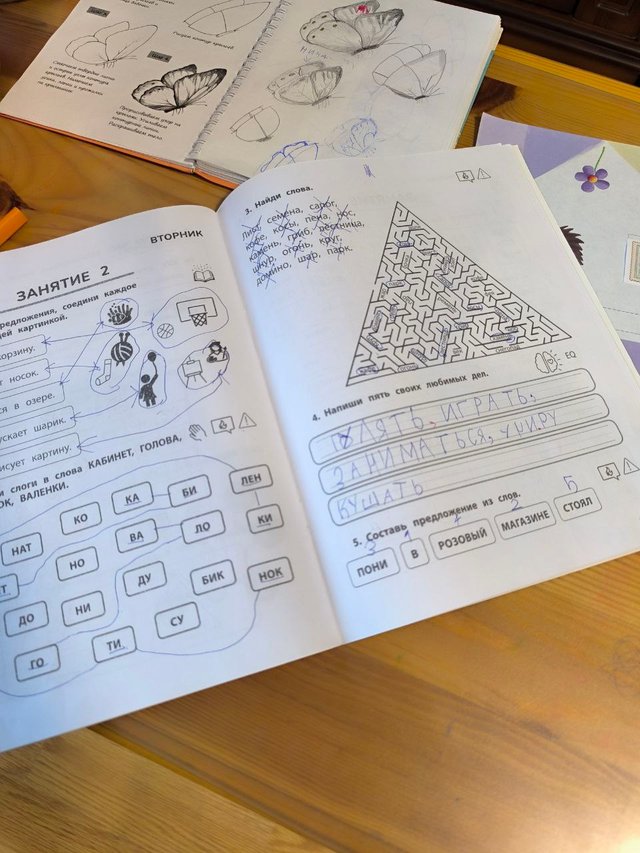 Прорисовываем узор на крыльях. Усиливаем контурные линии. Растушёвываем тело.
Рисуем контур крыльев.
ВТОРНИК
ЗАНЯТИЕ 2
предложения, соедини каждое
ей картинкой.
корзину.
т носок.
ся в озере.
ускает шарик.
исует картину.
и слоги в слова КАБИНЕТ, ГОЛОВА,
ОК, ВАЛЕНКИ.
КА БИ ЛЕН
НАТ КО ВА ЛО КИ
Т НО ДУ БИК НОК
ДО НИ СУ
ГО ТИ
3. Найди слова.
лист, семена, сапог,
кофе, косы, пена, нос,
камень, гриб, лестница,
шнур, огонь, круг,
домино, шар, парк.
EQ
4. Напиши пять своих любимых дел.
ГУЛЯТЬ, ИГРАТЬ,
ЗАНИМАТЬСЯ,
КУШАТЬ
5. Составь предложение из слов.
3 1 4 2 5
ПОНИ В РОЗОВЫЙ МАГАЗИНЕ СТОЯЛ